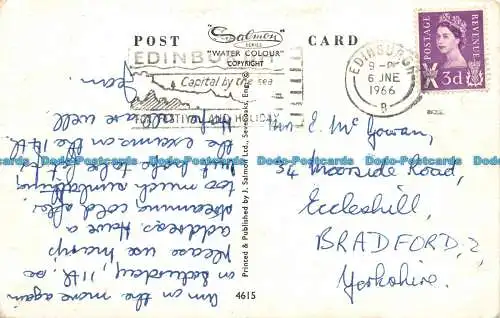 POST CARD
"Salmon"
SERIES
"WATER COLOUR"
COPYRIGHT
EDINBURGH
Capital by the sea
FOR FESTIVAL AND HOLIDAY
EDINBURGH
9 - PM
6 JNE
1966
B
POSTAGE
REVENUE
3d
Am on the move again
on Saturday, 11th. so
please use
address. Have a
streaming cold after
too much sunbathing
but hope to be fit for
the exams on the 14th.
Hope you're well
Jean.
Mrs E. McGowan,
34 Moorside Road,
Eccleshill,
BRADFORD, 2,
Yorkshire.
Printed & Published by J. Salmon Ltd., Sevenoaks, Eng. ©
4615
Dodo-Postcards Dodo-Postcards Dodo-Postcards Dodo-Postcards Dodo-Postcards Dodo-Postcards